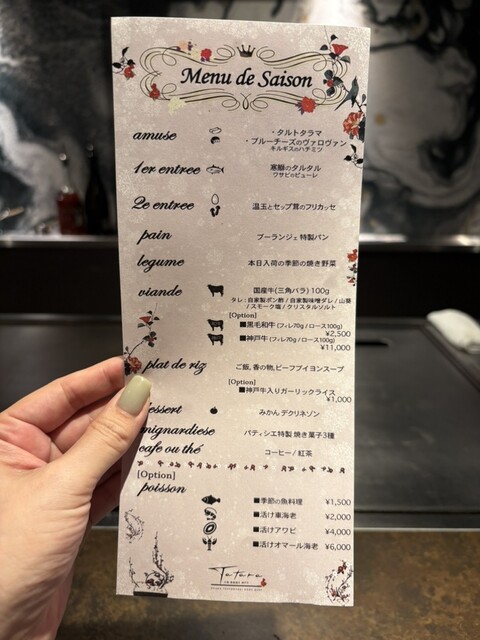 Menu de Saison
amuse
・タルトタラマ
・ブルーチーズのヴァロヴァン
キルギスのハチミツ
1er entree
寒鰤のタルタル
ワサビのピューレ
2e entree
温玉とセップ茸のフリカッセ
pain
ブーランジェ特製パン
legume
本日入荷の季節の焼き野菜
viande
国産牛(三角バラ) 100g
タレ:自家製ポン酢/自家製味噌ダレ/山葵
/スモーク塩/クリスタルソルト
[Option]
■黒毛和牛 (フィレ70g /ロース100g)
¥2,500
■神戸牛 (フィレ70g /ロース100g)
¥11,000
plat de riz
ご飯, 香の物, ビーフブイヨンスープ
[Option]
■神戸牛入りガーリックライス
¥1,000
dessert
みかん デクリネゾン
mignardiese
パティシエ特製 焼き菓子3種
cafe ou thé
コーヒー / 紅茶
[Option]
poisson
■季節の魚料理 ¥1,500
■活け車海老 ¥2,000
■活けアワビ ¥4,000
■活けオマール海老 ¥6,000